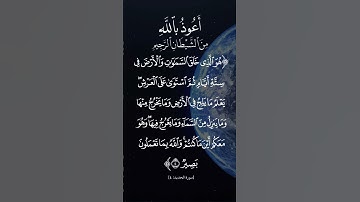 أَعُوذُ بِاللَّهِ
مِنَ الشَّيْطَانِ الرَّجِيمِ
﴿هُوَ ٱلَّذِى خَلَقَ ٱلسَّمَٰوَٰتِ وَٱلْأَرْضَ فِى
سِتَّةِ أَيَّامٍ ثُمَّ ٱسْتَوَىٰ عَلَى ٱلْعَرْشِ
يَعْلَمُ مَا يَلِجُ فِى ٱلْأَرْضِ وَمَا يَخْرُجُ مِنْهَا
وَمَا يَنزِلُ مِنَ ٱلسَّمَآءِ وَمَا يَعْرُجُ فِيهَا وَهُوَ
مَعَكُمْ أَيْنَ مَا كُنتُمْ وَٱللَّهُ بِمَا تَعْمَلُونَ
بَصِيرٌ ٤﴾
[سورة الحديد: ٤]